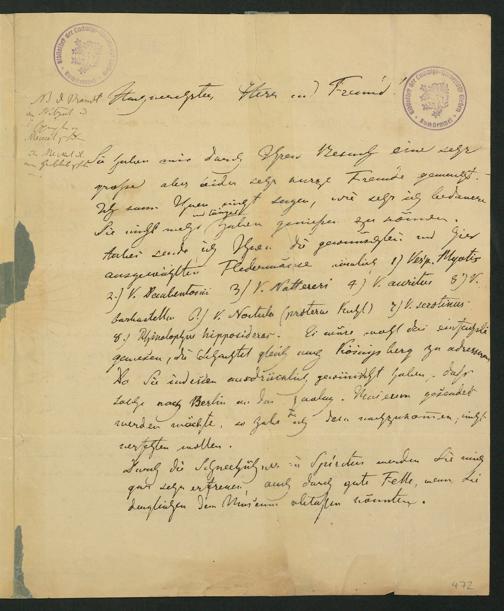 Hochverehrter Herr und Freund!
Sie haben mir durch Ihren Besuch eine sehr
große aber leider sehr kurze Freude gemacht.
Ich kann Ihnen nicht sagen, wie sehr ich bedauere
und länger
Sie nicht mehr haben genießen zu können.
Anbei sende ich Ihnen die gewünschten und hier
ausgewählten Fledermäuse nämlich 1) Vesp. Myotis
2.) V. Daubentonii 3) V. Nattereri 4) V. auritus 5) V.
barbastellus 6) V. Noctula (proterus Kuhl) 7) V. serotinus
8.) Rhinolophus hipposideros. Es wäre wohl das einfachste
gewesen, die Schachtel gleich nach Königsberg zu adressieren
Da Sie indessen ausdrücklich gewünscht haben, daß
solche nach Berlin an das zoolog. Museum gesendet
werden möchte, so habe ich dem nachzukommen, nicht
verfehlen wollen.
Durch die Schneehühner in Spiritus werden Sie mich
gar sehr erfreuen, auch durch gute Felle, wenn Sie
dergleichen dem Museum ablassen könnten.
472